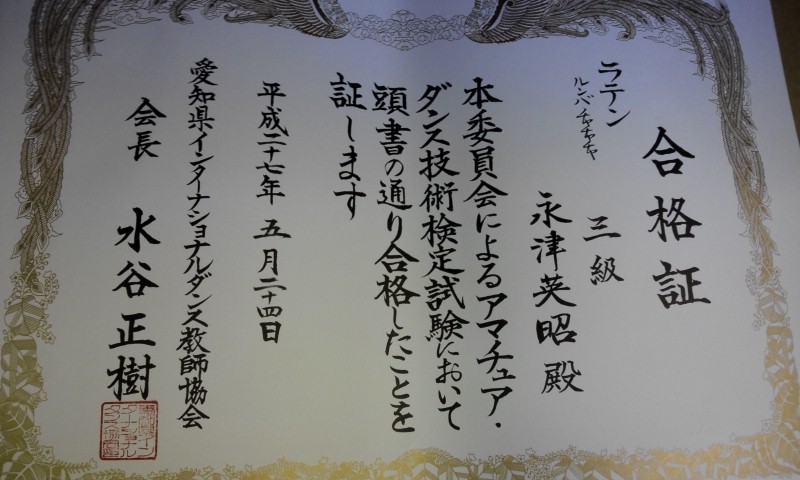 合格証
ラテン 三級
ルンバ チャチャチャ
永津英昭殿
本委員会によるアマチュア・
ダンス技術検定試験において
頭書の通り合格したことを
証します
平成二十七年 五月二十四日
愛知県インターナショナルダンス教師協会
会長 水谷正樹